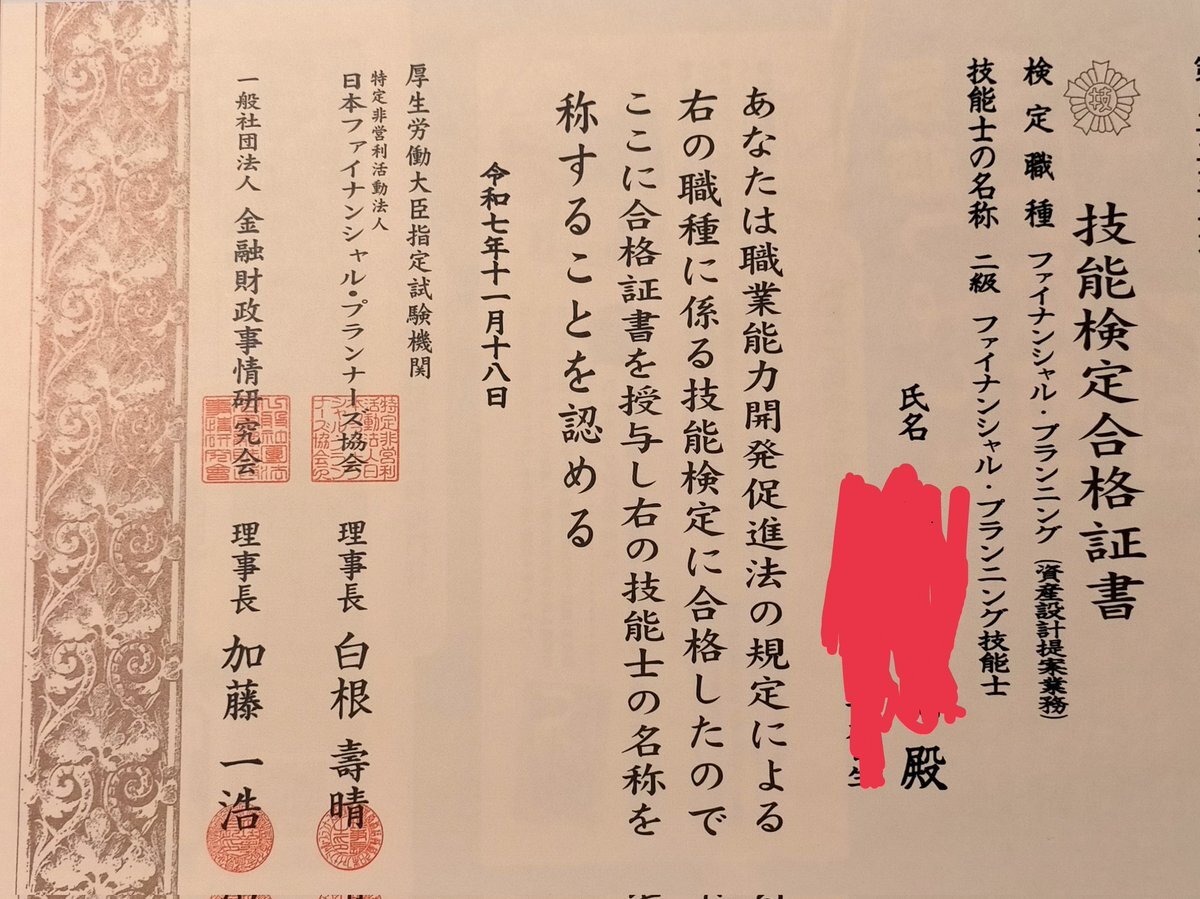 技
技能検定合格証書
検定職種 ファイナンシャル・プランニング(資産設計提案業務)
技能士の名称 二級 ファイナンシャル・プランニング技能士
氏名 殿
あなたは職業能力開発促進法の規定による
右の職種に係る技能検定に合格したので
ここに合格証書を授与し右の技能士の名称を
称することを認める
令和七年十一月十八日
厚生労働大臣指定試験機関
特定非営利活動法人
日本ファイナンシャル・プランナーズ協会 理事長 白根 壽晴
一般社団法人 金融財政事情研究会 理事長 加藤 一浩